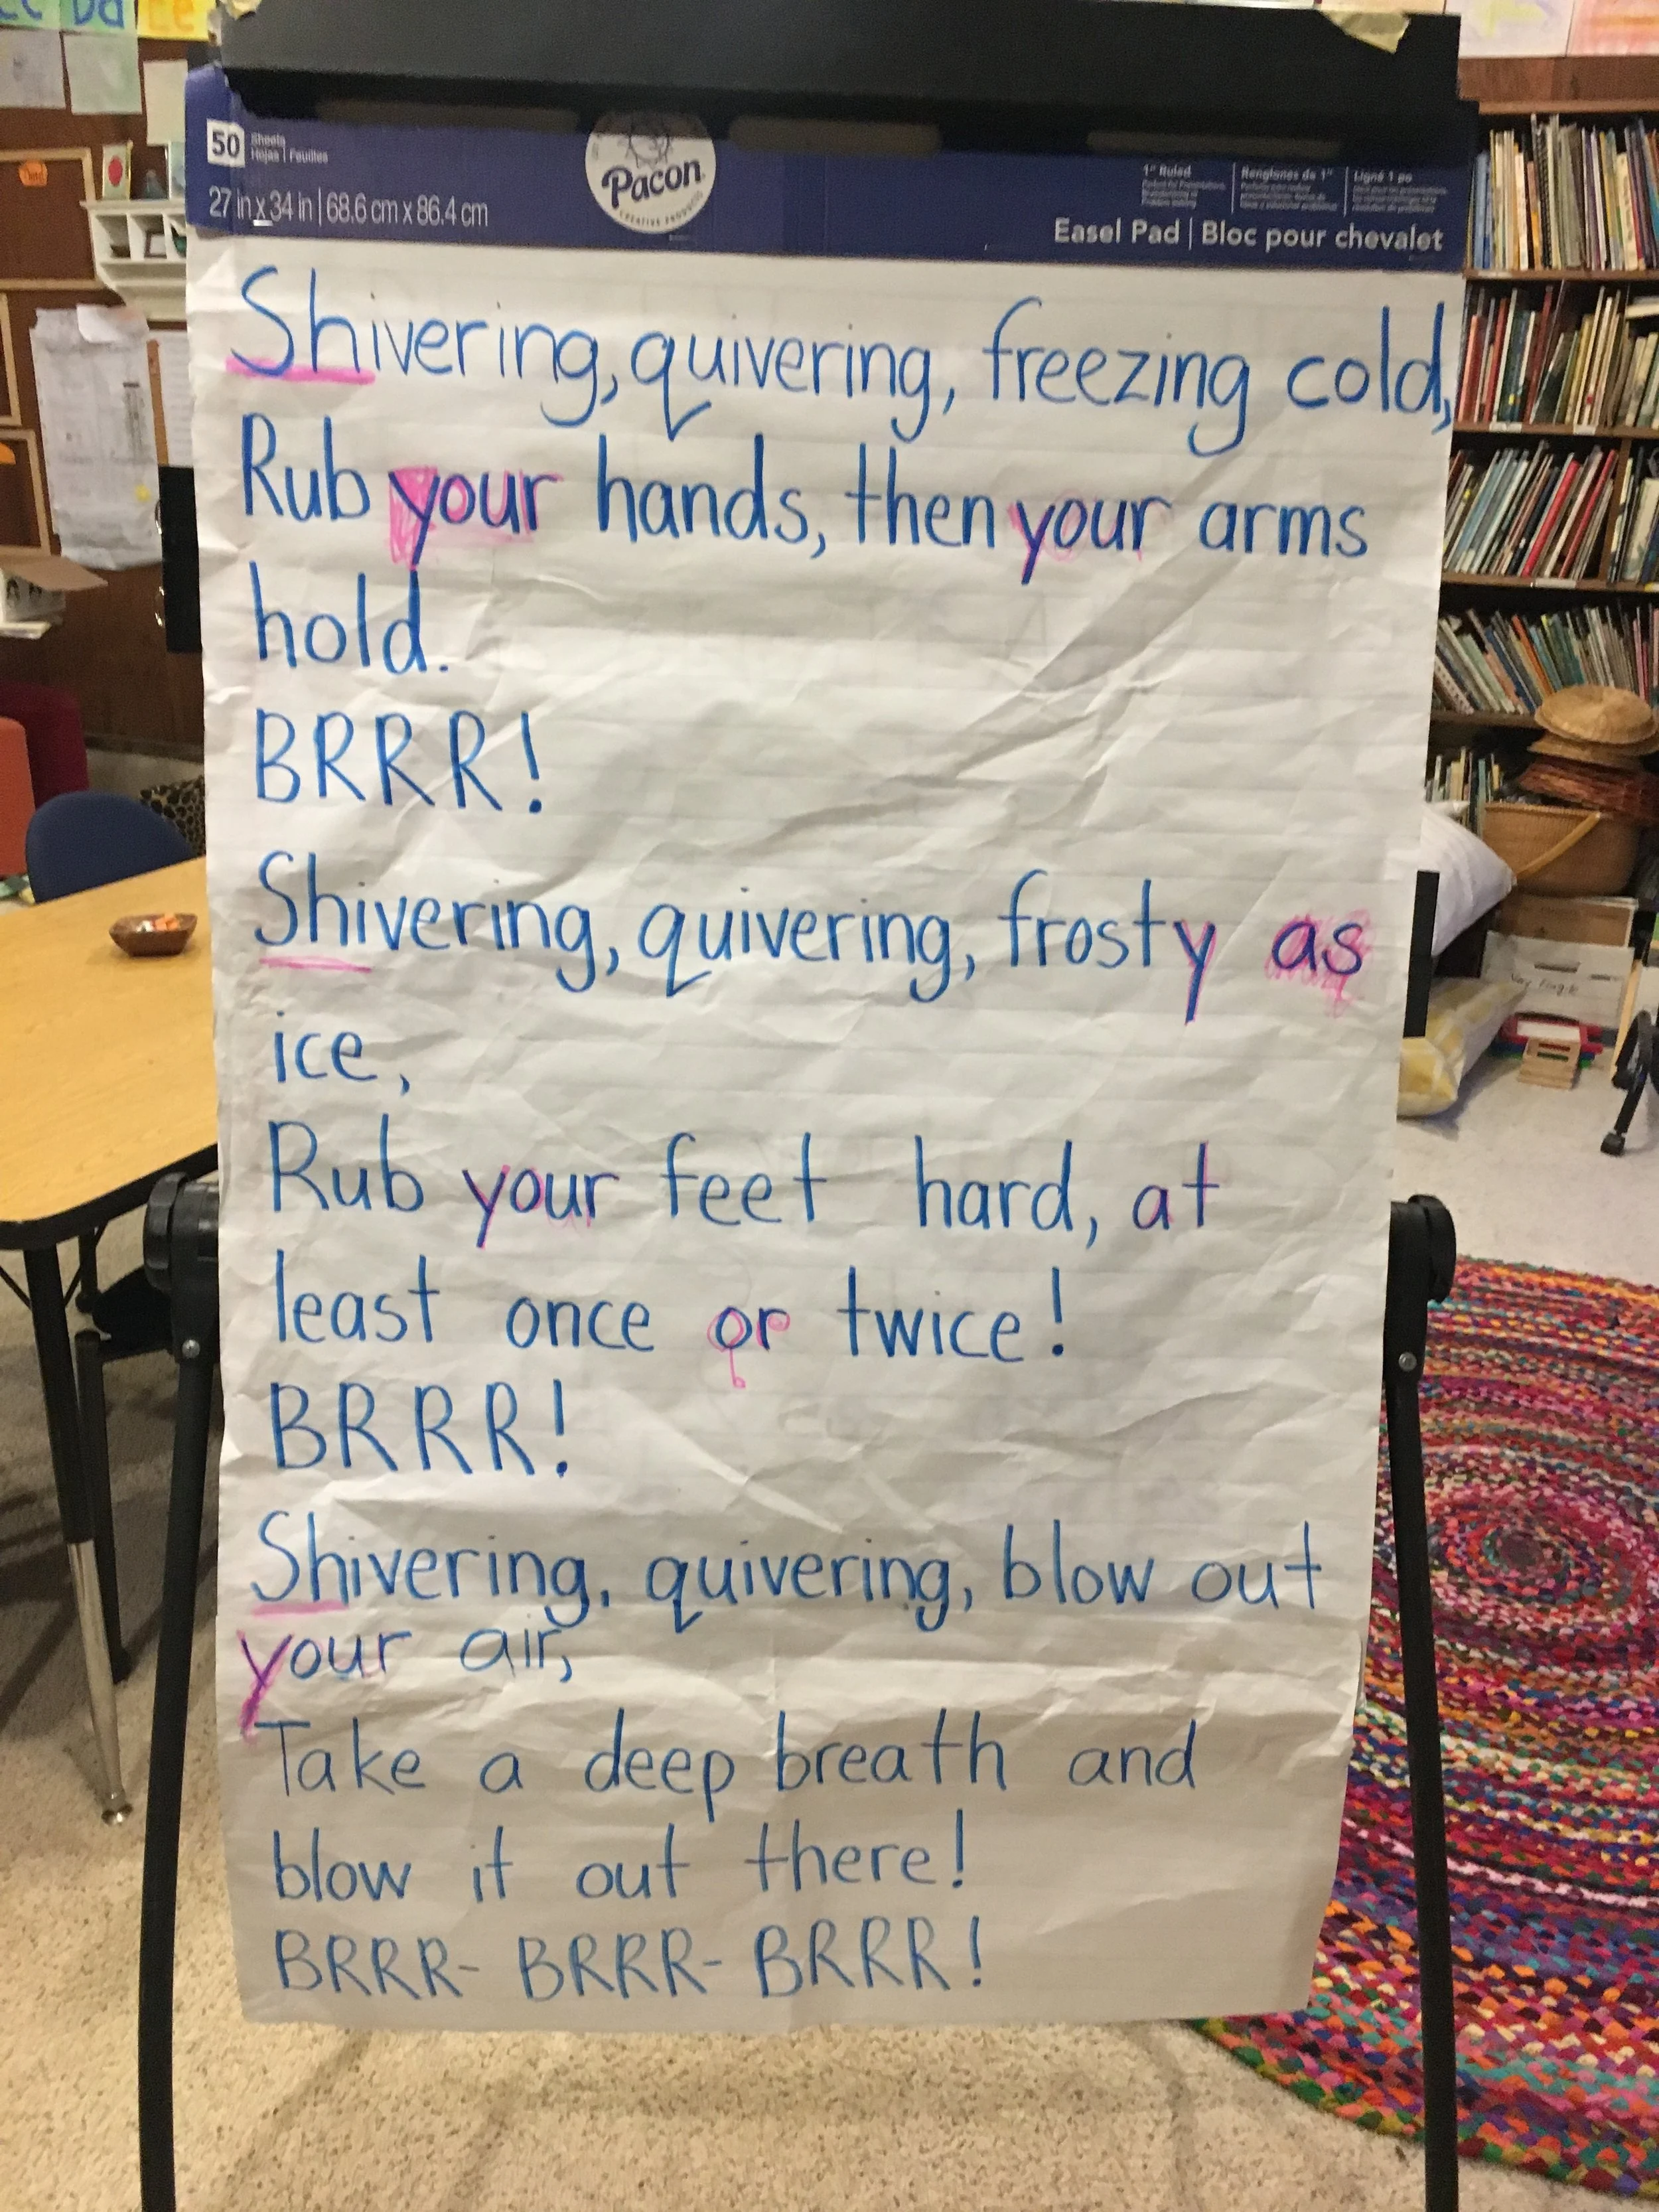 50 Sheets
Hojas | Feuilles
27 in x 34 in | 68.6 cm x 86.4 cm
Pacon
CREATIVE PRODUCTS
1" Ruled
Renglones de 1"
Ligné 1 po
Easel Pad | Bloc pour chevalet
Shivering, quivering, freezing cold,
Rub your hands, then your arms
hold.
BRRR!
Shivering, quivering, frosty as
ice,
Rub your feet hard, at
least once or twice!
BRRR!
Shivering, quivering, blow out
your air,
Take a deep breath and
blow it out there!
BRRR- BRRR- BRRR!